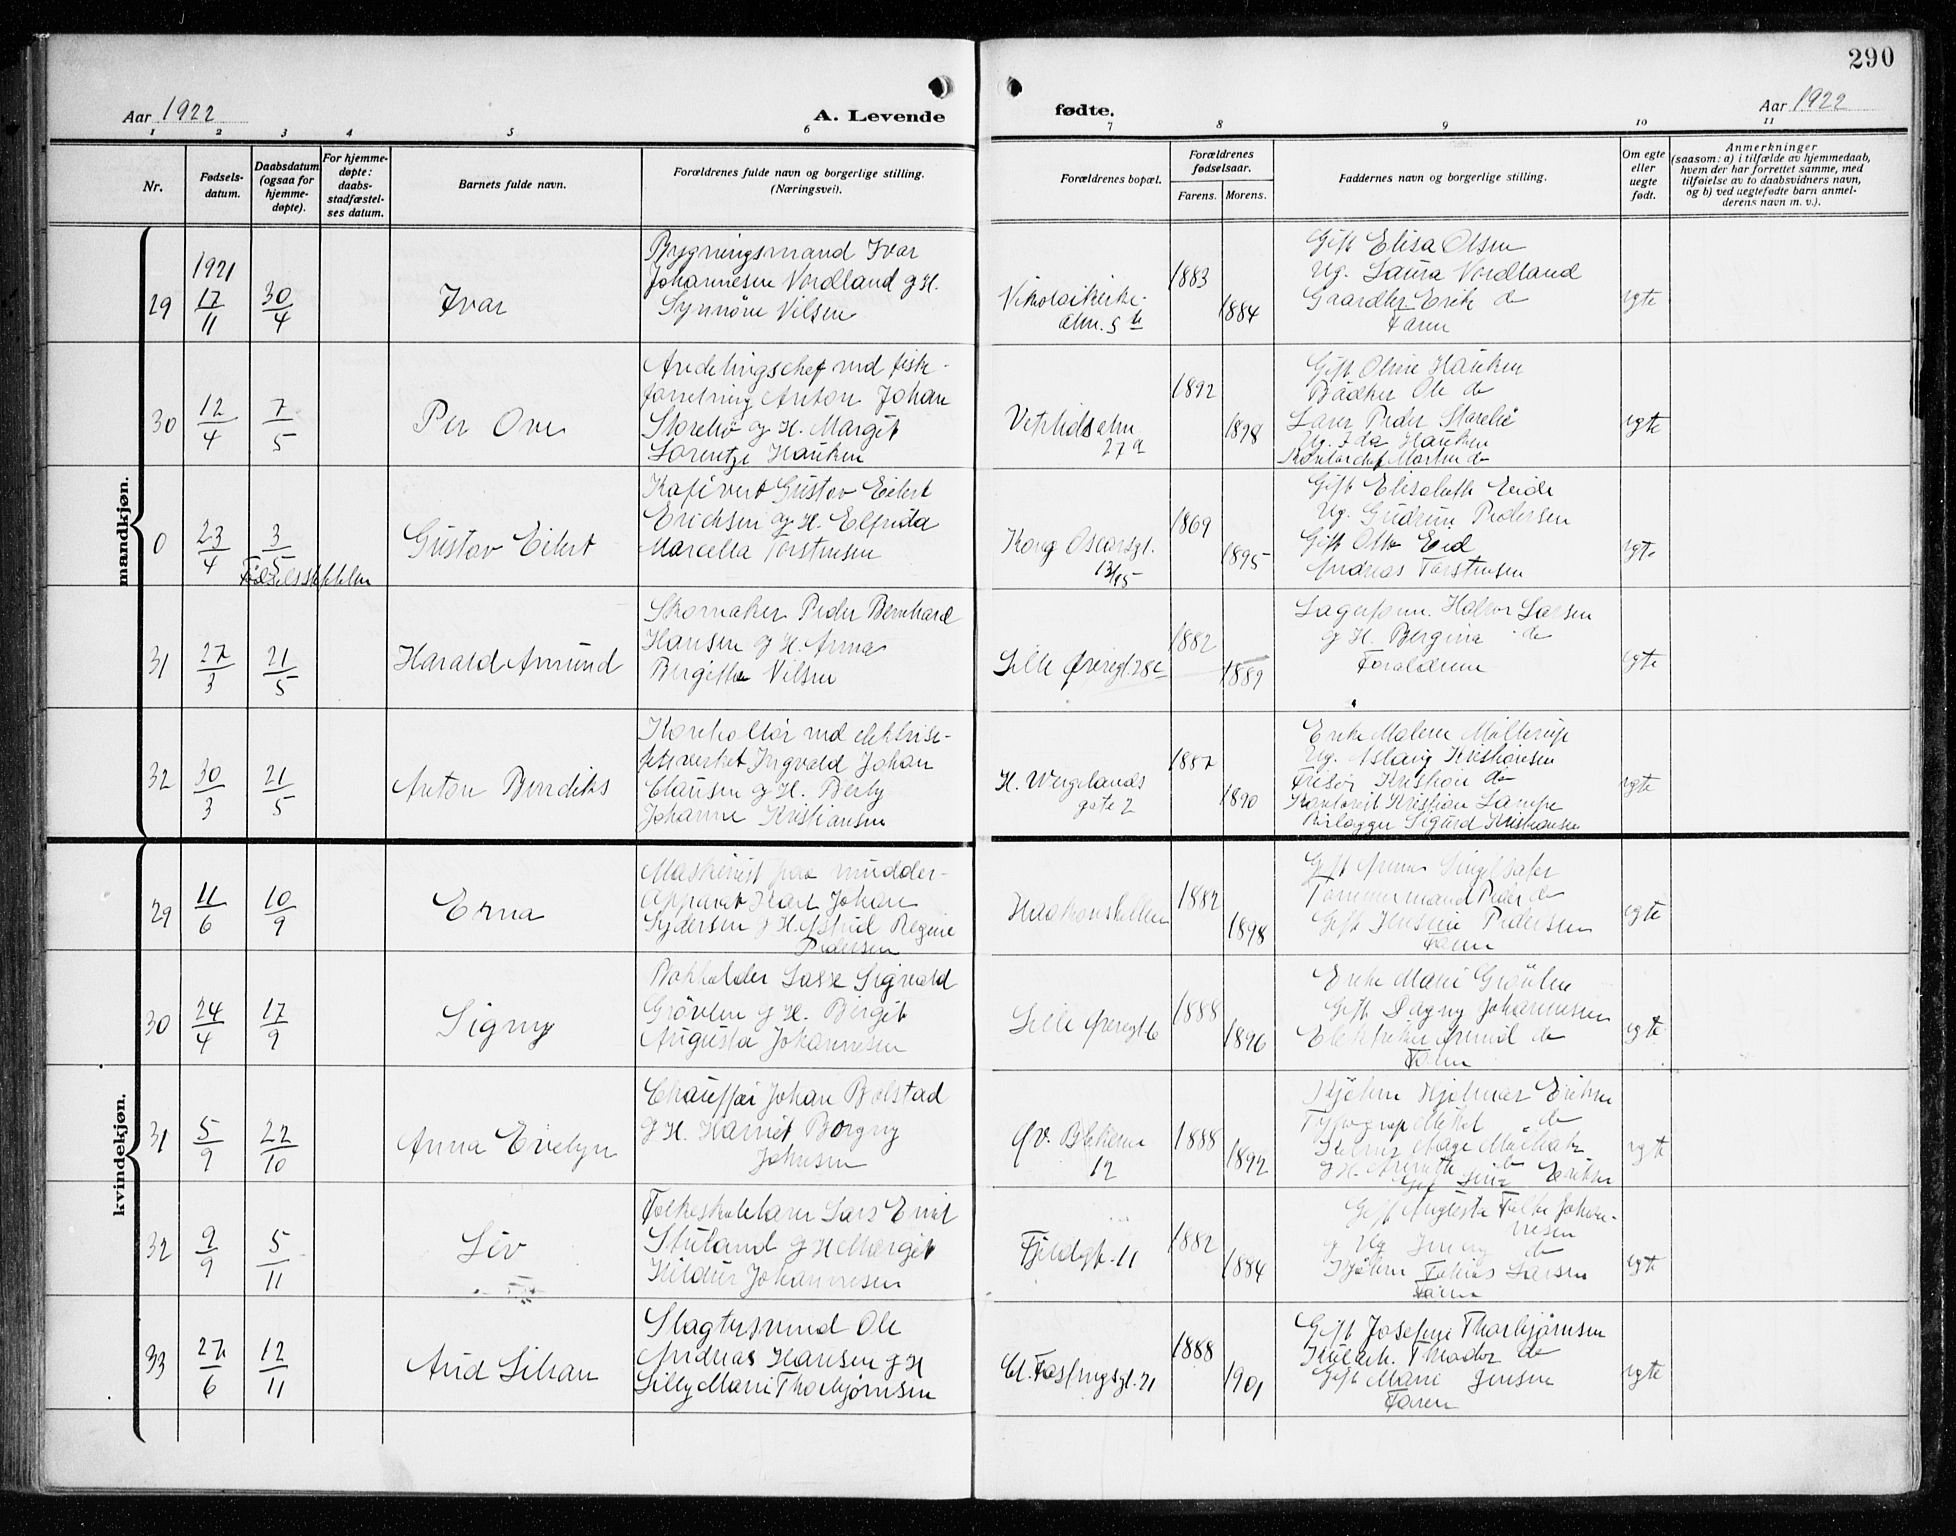 290
Aar 1922
A. Levende
fødte.
Aar 1922
1 2 3 4 5 6 7 8 9 10 11
Nr.
Fødsels-
datum.
Daabsdatum
(ogsaa for
hjemme-
døpte).
For hjemme-
døpte:
daabs-
stadfæstel-
ses datum.
Barnets fulde navn.
Forældrenes fulde navn og borgerlige stilling.
(Næringsvei).
Forældrenes bopæl.
Forældrenes
fødselsaar.
Farens. Morens.
Faddernes navn og borgerlige stilling.
Om egte
eller
uegte
født.
Anmerkninger
(saasom: a) i tilfælde av hjemmedaab,
hvem der har forrettet samme, med
tilføielse av to daabsvidners navn,
og b) ved uegtefødte barn anmel-
derens navn m. v.).
mandkjøn.
29
1921
17/11
30/4
Ivar
Bygningsmand Ivar
Johannesen Nordland g H.
Synnøve Nilsen
Nikolaikirke-
alm. 5 b
1883
1884
Gift Elisa Olsen
Ug. Laura Nordland
Gaardbr Erik do
Faren
egte
30
12/4
7/5
Per Ove
Avdelingschef ved fiske-
forretning Anton Johan
Storebø og H. Margit
Lorentze Hauken
Vetrlidsalm
27 a
1892
1898
Gift Oline Hauken
Bødker Ole do
Lærer Peder Storebø
Ug. Ida Hauken
Kontorchef Martin do
egte
0
23/4
3/5
Fødselsstiftelsen
Gustav Eilert
Kafévert Gustav Eilert
Erichsen og H. Elfrida
Marcella Torstensen
Kong Oscarsgt.
13/15
1869
1895
Gift Elisabeth Eide
Ug. Gudrun Pedersen
Gift Otto Eid
Andreas Torstensen
egte
31
27/3
21/5
Harald Amund
Skomaker Peder Bernhard
Hansen g H. Anna
Birgitte Nilsen
Lille Øvregt. 28c
1882
1889
Lagerform. Halvor Larsen
g H. Bergine do
Forældrene
egte
32
30/3
21/5
Anton Bendiks
Kontrollør ved elektrisi-
tetsverket Ingvald Johan
Clausen g H. Betsy
Johanne Kristiansen
H. Wergelands
gate 2
1887
1890
Enke Malene Møllerup
Ug. Aslaug Kristiansen
Frisør Kristian do
Kontorist Kristian Lampe
Rørlægger Sigurd Kristiansen
egte
kvindekjøn.
29
11/6
10/9
Erna
Maskinist paa mudder-
apparat Karl Johan
Sydersen g H. Astrid Regine
Pedersen
Haakonshallen
1882
1898
Gift Anna
Tømmermand Peder do
Gift Pedersen
Faren
egte
30
24/4
17/9
Signy
Bokholder Lasse Sigvald
Grøvlen g H. Birgit
Augusta Johannesen
Lille Øvregt 6
1888
1896
Enke Mari Grøvlen
Gift Dagny Johannesen
Elektriker Arvid do
Faren
egte
31
5/9
22/10
Anna Evelyn
Chauffør Johan Bolstad
g H. Harriet Borgny
Johnsen
Øv. Blekevei
12
1888
1892
Kjøbm Hjalmar Eriksen
Typograf Mikal do
g H. Annette do
Gift Eriksen
egte
32
9/9
5/11
Liv
Folkeskolelærer Lars Emil
Stuland g H Margit
Hildur Johannesen
Fjeldgt. 11
1882
1884
Gift Augusta Falke Johan-
nesen
g Ug Jenny do
Kjøbm Tobias Larsen
Faren
egte
33
27/6
12/11
Aud Lilian
Slagtersvend Ole
Andreas Hansen g H
Lilly Marie Thorbjørnsen
Ed. Fastingsgt. 21
1888
1901
Gift Josefine Thorbjørnsen
Theodor do
Gift Marie Jensen
Faren
egte